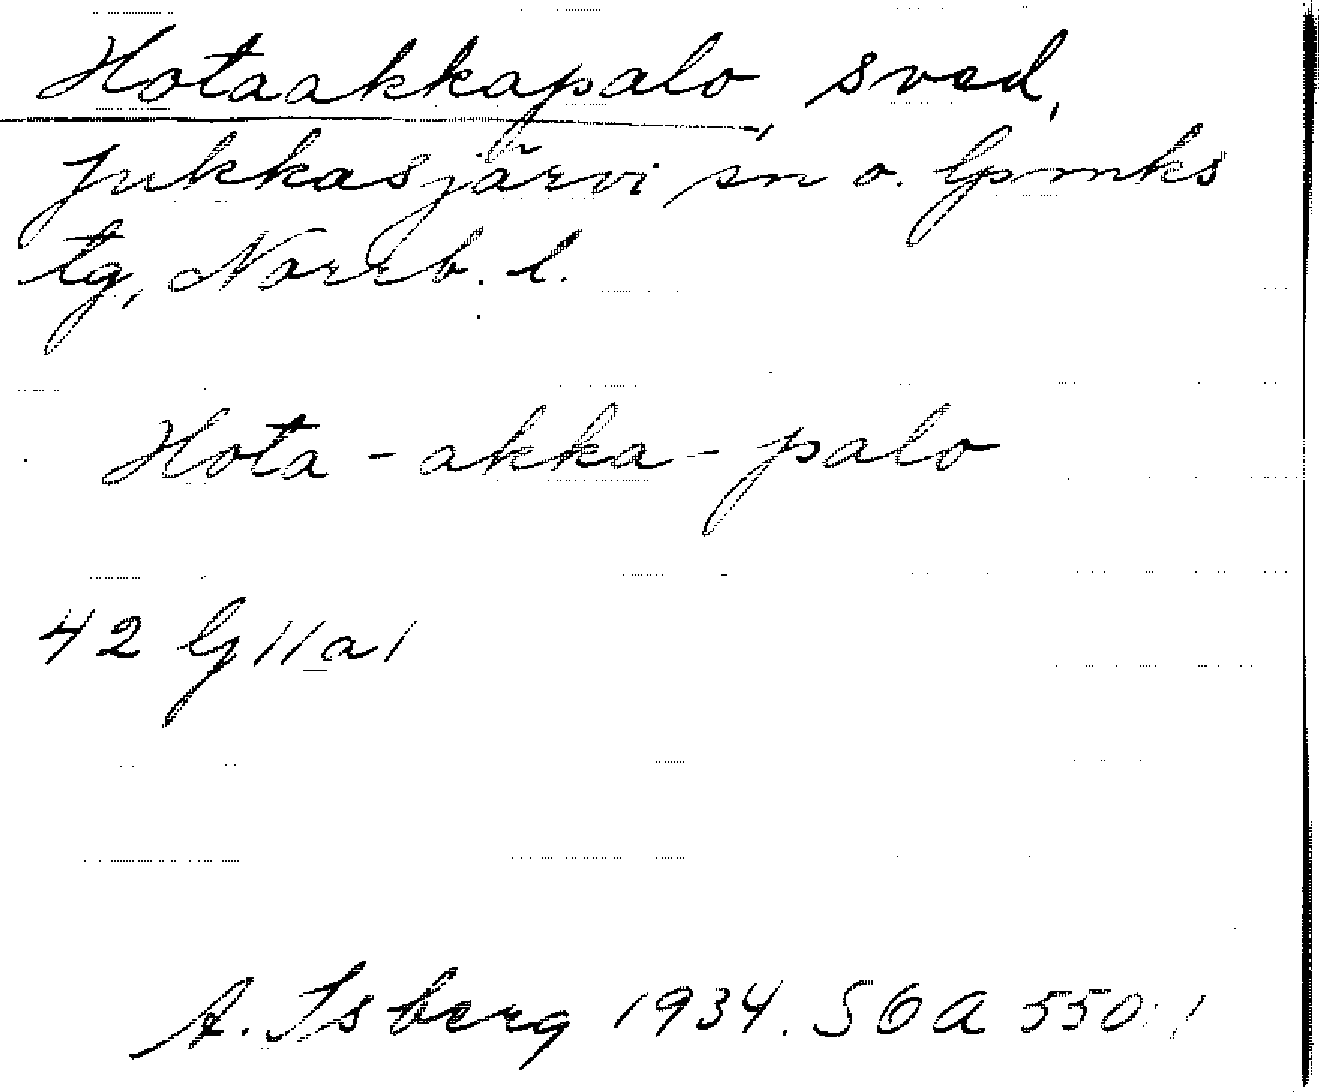 Hotaakkapalo, sved,
Jukkasjärvi sn o. lpmks
tg, Norrb. l.
Hota - akka - palo
42 G 11 a 1
A. Isberg 1934. SOA 550:1